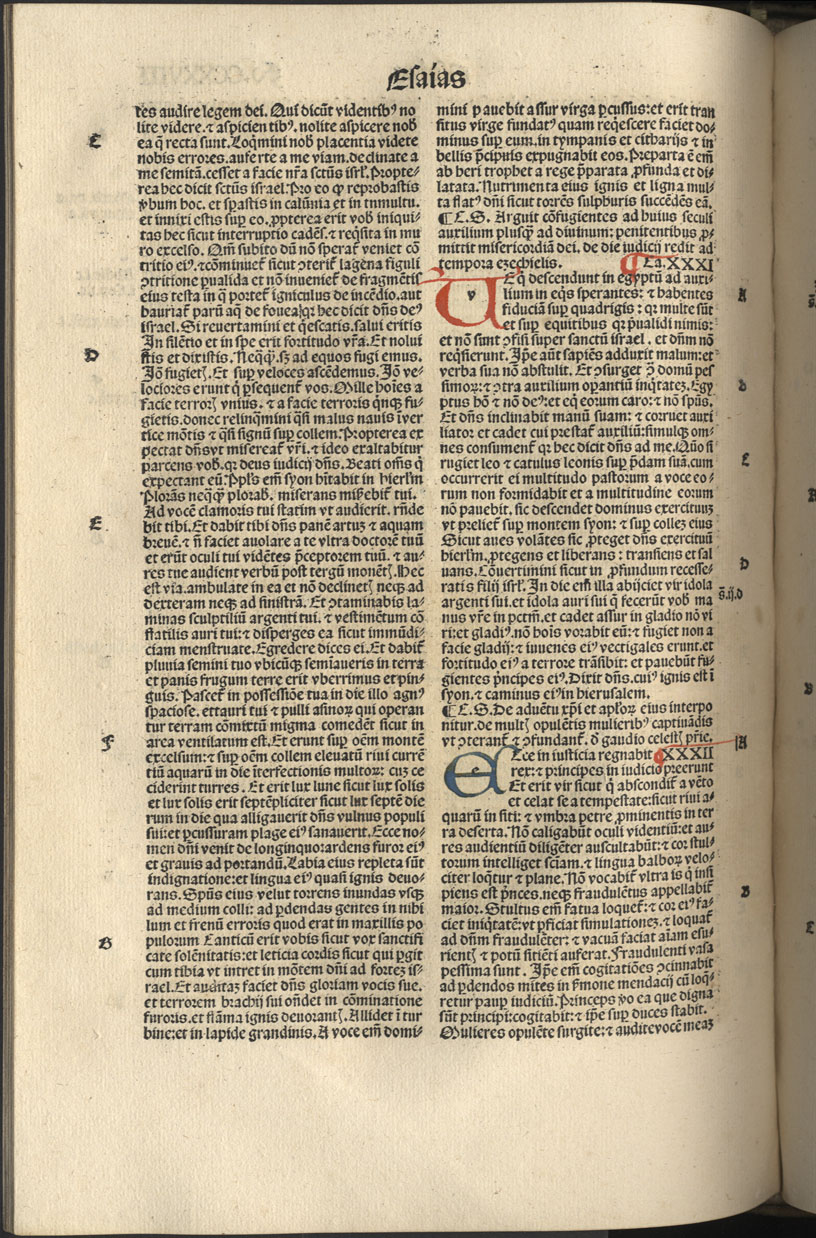 Esaias
tes audire legem dei. Qui dicūt videntibꝰ no
lite videre. ⁊ aspicien tibꝰ. nolite aspicere nob̄
C
ea q̄ recta sunt. Loq̄mini nob̄ placentia videte
nobis errores. auferte a me viam. declinate a
me semitā. cesset a facie nr̄a sctūs isrl̄. Propte-
rea hec dicit sctūs israel. Pro eo ꝙ reprobastis
v̄bum hoc. et spastis in calūnia et in tumultu.
et innixi estis suꝑ eo. ꝓpterea erit vob̄ iniqui-
tas hec sicut interruptio cadēs. ⁊ reqͥsita in mu
ro excelso. Qm̄ subito dū nō speraᵗ veniet cō
tritio eiꝰ. ⁊ cōminueᵗ sicut ꝯteriᵗ lagēna figuli
ꝯtritione ꝑualida et nō inuenieᵗ de fragmētis
eius testa in q̄ porteᵗ igniculus de incēdio. aut
hauriaᵗ parū aq̄ de fouea. qꝛ hec dicit dn̄s deꝰ
israel. Si reuertamini et q̄escatis. salui eritis
In silētio et in spe erit fortitudo vr̄a. Et nolui
D
stis et dixistis. Neqͣꝙ. sꝫ ad equos fugi emus.
Iō fugietꝭ. Et suꝑ veloces ascēdemus. Iō ve-
lociores erunt q̄ ꝑsequenᵗ vos. Mille hoīes a
facie terrorꝭ vnius. ⁊ a facie terroris qͥnqꝫ fu-
gietis. donec relinqͣmini qͣsi malus nauis ī ver
tice mōtis ⁊ qͣsi signū suꝑ collem. Propterea ex
pectat dn̄s vt misereaᵗ vr̄i. ⁊ ideo exaltabitur
parcens vob̄. qꝛ deus iudicij dn̄s. Beati om̄s q̄
expectant eū. Ppl̄s em̄ syon hītabit in hierl̄m
Plorās neqͣꝙ plorab̄. miserans mis̄ebiᵗ tui.
Ad vocē clamoris tui statim vt audierit. rn̄de
E
bit tibi. Et dabit tibi dn̄s panē artuꝫ ⁊ aquam
breuē. ⁊ n̄ faciet auolare a te vltra doctorē tuū
et erūt oculi tui vidētes p̄ceptorem tuū. ⁊ au-
res tue audient verbū post tergū monētꝭ. Hec
est via. ambulate in ea et nō declinetꝭ neqꝫ ad
dexteram neqꝫ ad sinistrā. Et ꝯtaminabis la-
minas sculptiliū argenti tui. ⁊ vestimētum cō
flatilis auri tui: ⁊ disperges ea sicut immūdi-
ciam menstruate. Egredere dices ei. Et dabiᵗ
pluuia semini tuo vbicūqꝫ semīaueris in terra
et panis frugum terre erit vberrimus et pin-
guis. Pasceᵗ in possessiōe tua in die illo agnꝰ
spaciose. et tauri tui ⁊ pulli asinoꝝ qui operan
tur terram cōmixtū migma comedēt sicut in
F
area ventilatum est. Et erunt suꝑ oēm montē
excelsum: ⁊ suꝑ oēm collem eleuatū riui currē
tiū aquarū in die īterfectionis multoꝝ: cuꝫ ce
ciderint turres. Et erit lux lune sicut lux solis
et lux solis erit septēpliciter sicut lux septē die
rum in die qua alligauerit dn̄s vulnus populi
sui: et ꝑcussuram plage eiꝰ sanauerit. Ecce no-
men dn̄i venit de longinquo: ardens furor eiꝰ
et grauis ad portandū. Labia eius repleta sūt
indignatione: et lingua eiꝰ quasi ignis deuo-
rans. Spūs eius velut torrens inundās vsqꝫ
ad medium colli: ad ꝑdendas gentes in nihi
lum et frenū erroris quod erat in maxillis po
G
pulorum Canticū erit vobis sicut vox sanctifi
cate solēnitatis: et leticia cordis sicut qui ꝑgit
cum tibia vt intret in mōtem dn̄i ad fortez is-
rael. Et auditaꝫ faciet dn̄s gloriam vocis sue.
et terrorem brachij sui on̄det in cōminatione
furoris. et flāma ignis deuorantꝭ. Allidet ī tur
bine: et in lapide grandinis. A voce em̄ domi-
mini pauebit assur virga ꝑcussus: et erit tran
situs virge fundatꝰ quam reqͥescere faciet do-
minus suꝑ eum. in tympanis et citharijs ⁊ in
bellis p̄cipuis expugnabit eos. Preparta ē em̄
ab heri trophet a rege p̄parata ꝓfunda et di-
latata. Nutrimenta eius ignis et ligna mul-
ta flatꝰ dn̄i sicut torrēs sulphuris succēdēs eā.
¶ C. S. Arguit cōfugientes ad huius seculi
auxilium plusꝙ ad diuinum: penitentibus ꝑ-
mittit misericordiā dei. de die iudicij redit ad
tempora ezechielis. ¶ Ca. XXXI
Ue q̄ descendunt in egyptū ad auxi-
A
lium in eqͥs sperantes: ⁊ habentes
fiduciā suꝑ quadrigis: qꝛ multe sūt
et suꝑ equitibus qꝛ p̄ualidi nimis:
et nō sunt ꝯfisi super sanctū israel. et dn̄m nō
reqͥsierunt. Ip̄e aūt sapiēs adduxit malum: et
verba sua nō abstulit. Et ꝯsurget ꝯͣ domū pes
B
simoꝝ: ⁊ ꝯtra auxilium oꝑantiū inqͥtateꝫ. Egy
ptus hō ⁊ nō deꝰ: et eq̄ eorum caro: ⁊ nō spūs.
Et dn̄s inclinabit manū suam: ⁊ corruet auxi
liator et cadet cui prestaᵗ auxiliū: simulqꝫ om-
nes consumenᵗ qꝛ hec dicit dn̄s ad me. Quō si
rugiet leo ⁊ catulus leonis suꝑ p̄dam suā. cum
C
occurrerit ei multitudo pastorum a voce eo-
rum non formidabit et a multitudine eorum
nō pauebit. sic descendet dominus exercituuꝫ
vt prelieᵗ suꝑ montem syon: ⁊ suꝑ colleꝫ eius
Sicut aues volātes sic ꝓteget dn̄s exercituū
hierl̄m. ꝓtegens et liberans: transiens et sal
uans. Cōuertimini sicut in ꝓfundum recesse-
D
ratis filij isrl̄. In die em̄ illa abijciet vir idola
argenti sui. et idola auri sui q̄ fecerūt vob̄ ma
s̄.ij.d
nus vr̄e in pctm̄. et cadet assur in gladio nō vi
ri: et gladiꝰ. nō hoīs vorabit eū: ⁊ fugiet non a
facie gladij: ⁊ iuuenes eiꝰ vectigales erunt. et
fortitudo eiꝰ a terrore trāsibit: et pauebūt fu-
gientes p̄ncipes eiꝰ. Dixit dn̄s. cuiꝰ ignis est ī
syon. ⁊ caminus eiꝰ in hierusalem.
¶ C. S. De aduētu xp̄i et apl̄oꝝ eius interpo
nitur. de multꝭ opulētis mulieribꝰ captiuādis
vt ꝯteranᵗ ⁊ ꝯfundanᵗ. d̄ gaudio celestꝭ pr̄ie.
Ecce in iusticia regnabit ¶ XXXII
A
rex: ⁊ principes in iudicio preerunt
Et erit vir sicut q̄ abscondiᵗ a vēto
et celat se a tempestate: sicut riui a-
quarū in siti: ⁊ vmbra petre ꝓminentis in ter
ra deserta. Nō caligabūt oculi videntiū: et au-
res audientiū diligēter auscultabūt: ⁊ cor stul-
torum intelliget sciam̄. ⁊ lingua balboꝝ velo-
citer loqͣtur ⁊ plane. Nō vocabiᵗ vltra is q̄ insi
piens est p̄nces. neqꝫ fraudulētus appellabiᵗ
B
maior. Stultus em̄ fatua loqueᵗ: ⁊ cor eiꝰ fa-
ciet iniqͥtatē: vt ꝑficiat simulationeꝫ. ⁊ loquaᵗ
ad dn̄m fraudulēter: ⁊ vacuā faciat aīam esu-
rientꝭ ⁊ potū sitiēti auferat. Fraudulenti vasa
pessima sunt. Ip̄e em̄ cogitatiōes ꝯcinnabit
ad ꝑdendos mites in s̄mone mendacij cū loq̄-
retur pauꝑ iudiciū. Princeps v̄o ea que digna
sūt principi: cogitabit: ⁊ ip̄e suꝑ duces stabit.
Mulieres opulēte surgite: ⁊ audite vocē meaꝫ